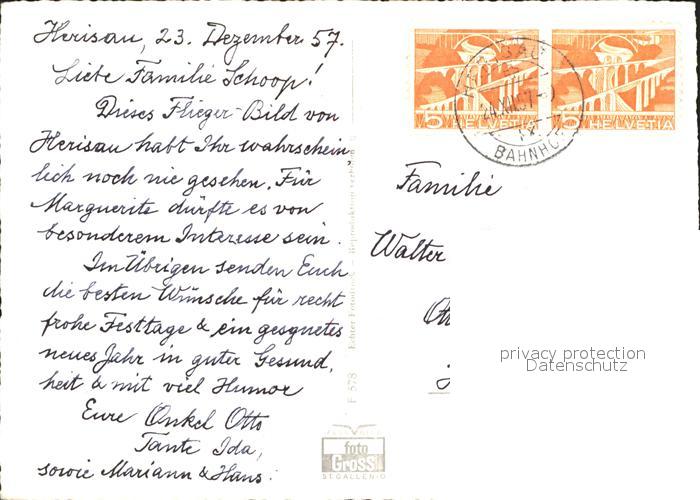 Herisau, 23. Dezember 57.
Liebe Familie Schoop!
Dieses Flieger-Bild von
Herisau habt Ihr wahrschein-
lich noch nie gesehen. Für
Marguerite dürfte es von
besonderem Interesse sein.
Im Übrigen senden Euch
die besten Wünsche für recht
frohe Festtage & ein gesegnetes
neues Jahr in guter Gesund,
heit & mit viel Humor
Eure Onkel Otto
Tante Ida,
sowie Mariann & Hans.
F 578
foto
Gross
ST. GALLEN-O
5 HELVETIA
5 HELVETIA
HERISAU
BAHNHOF
Familie
Walter
privacy protection
Datenschutz